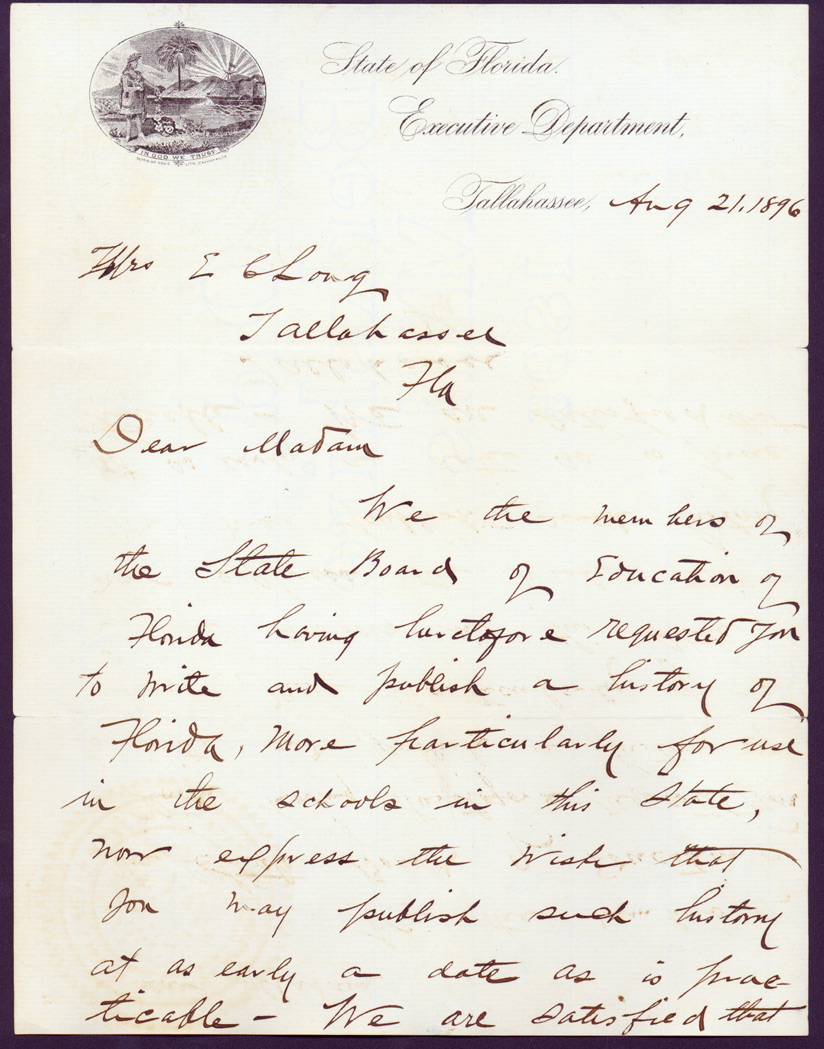 IN GOD WE TRUST
State of Florida.
Executive Department,
Tallahassee, Aug 21. 1896
Mrs E C Long
Tallahassee
Fla
Dear Madam
We the members of
the State Board of Education of
Florida having heretofore requested you
to write and publish a history of
Florida, more particularly for use
in the schools in this State,
now express the wish that
you may publish such history
at as early a date as is prac-
ticable - We are satisfied that